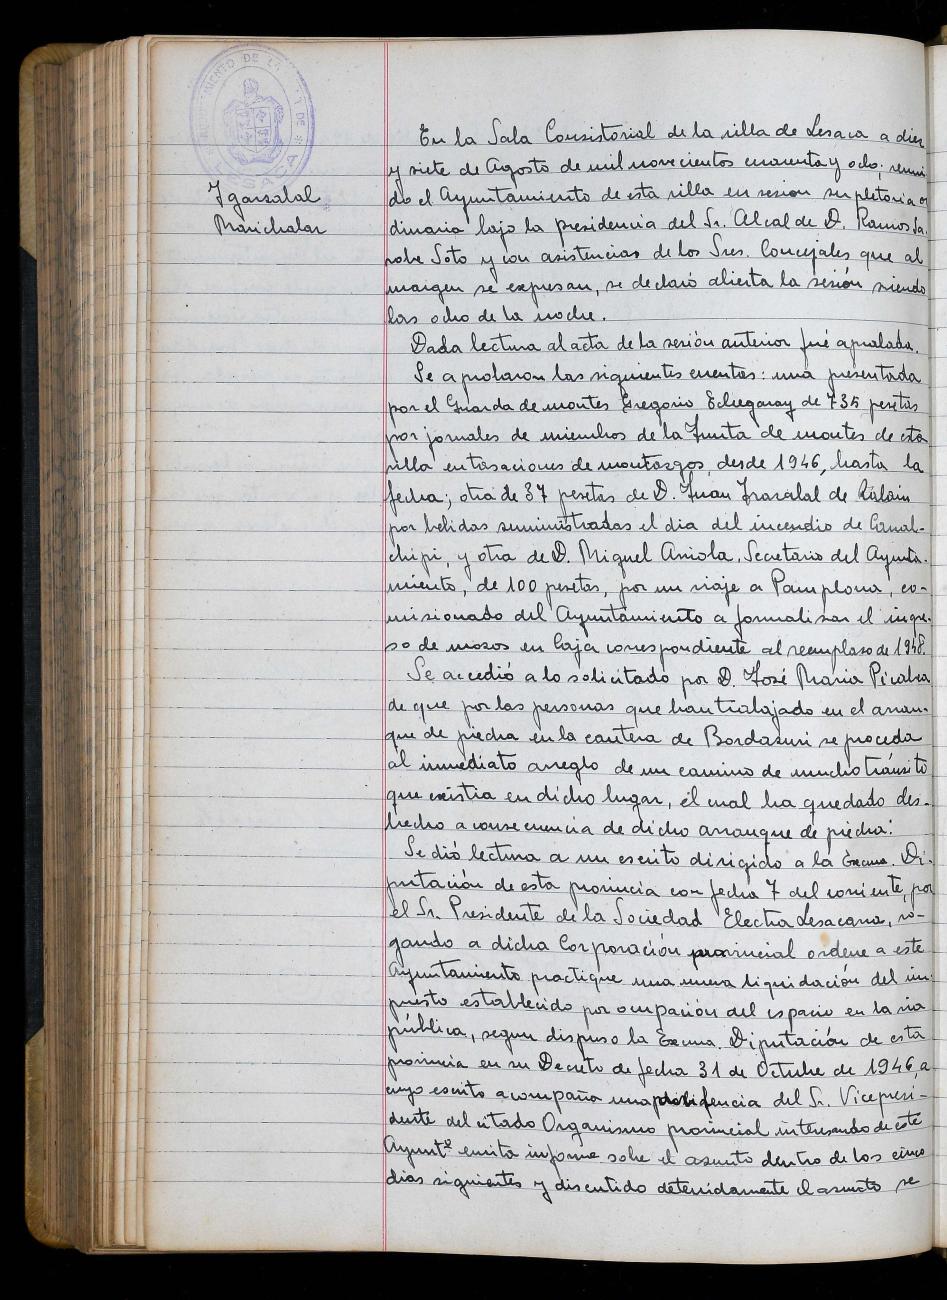 AYUNTAMIENTO DE LA DE
LESACA
Igarzabal
Marichalar
En la Sala Consistorial de la villa de Lesaca a diez
y siete de Agosto de mil novecientos cuarenta y ocho; reuni
do el Ayuntamiento de esta villa en sesion supletoria or
dinaria bajo la presidencia del Sr. Alcalde D. Ramos Sa-
robe Soto y con asistencias de los Sres. Concejales que al
margen se expresan, se declaró abierta la sesión siendo
las ocho de la noche.
Dada lectura al acta de la sesión anterior fué aprobada.
Se aprobaron las siguientes cuentas: una presentada
por el Guarda de montes Gregorio Echegaray de 735 pesetas
por jornales de miembros de la Junta de montes de esta
villa en tasaciones de montazgos, desde 1946, hasta la
fecha; otra de 37 pesetas de D. Juan Irazabal de
por bebidas suministradas el dia del incendio de
chipi, y otra de D. Miguel Arriola, Secretario del Ayunta-
miento, de 100 pesetas, por un viaje a Pamplona, co-
misionado del Ayuntamiento a formalizar el ingre-
so de mozos en Caja correspondiente al reemplazo de 1948.
Se accedió a lo solicitado por D. José Maria Picabea
de que por las personas que han trabajado en el arran-
que de piedra en la cantera de Bordazuri se proceda
al inmediato arreglo de un camino de mucho tránsito
que existia en dicho lugar, el cual ha quedado des-
hecho a consecuencia de dicho arranque de piedra.
Se dió lectura a un escrito dirigido a la Excma. Di-
putación de esta provincia con fecha 7 del corriente, por
el Sr. Presidente de la Sociedad Electra Lesacana, ro-
gando a dicha Corporación provincial ordene a este
Ayuntamiento practique una nueva liquidación del im-
puesto establecido por ocupación del espacio en la via
pública, segun dispuso la Excma. Diputación de esta
provincia en su Decreto de fecha 31 de Octubre de 1946, a
cuyo escrito acompaña una providencia del Sr. Vicepresi-
dente del citado Organismo provincial interesando de este
Ayuntº emita informe sobre el asunto dentro de los cinco
dias siguientes y discutido detenidamente el asunto se